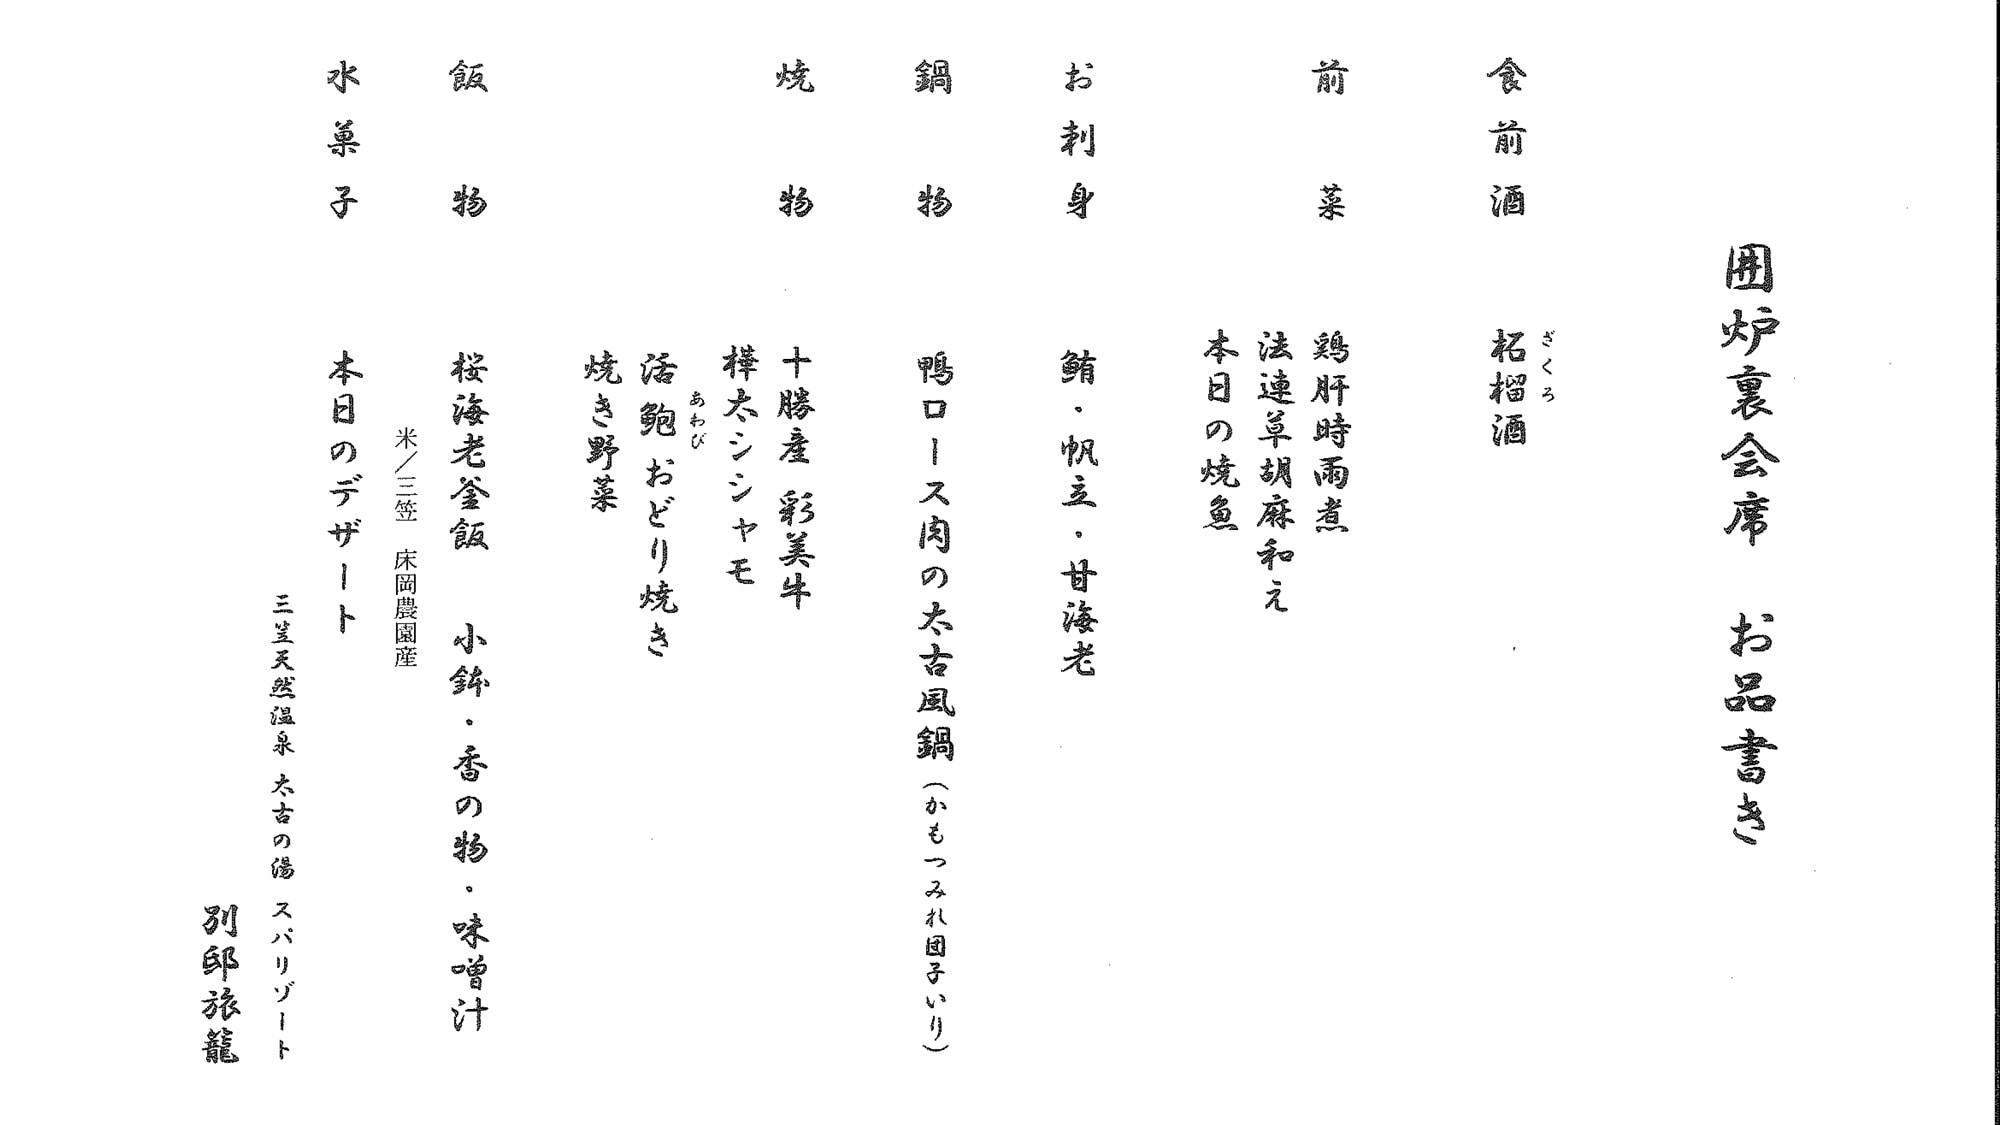 囲炉裏会席　お品書き
食前酒　柘榴酒
ざくろ
前菜　鶏肝時雨煮
法連草胡麻和え
本日の焼魚
お刺身　鮪・帆立・甘海老
鍋物　鴨ロース肉の太古風鍋（かもつみれ団子いり）
焼物　十勝産 彩美牛
樺太シシャモ
あわび
活鮑 おどり焼き
焼き野菜
飯物　桜海老釜飯　小鉢・香の物・味噌汁
米／三笠　床岡農園産
水菓子　本日のデザート
三笠天然温泉 太古の湯 スパリゾート
別邸旅籠